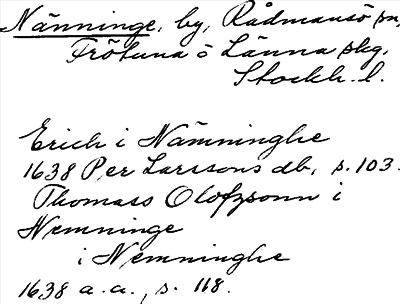 Nänninge, by, Rådmansö sn,
Frötuna o Länna skg,
Stockh. l.
Erich i Nämninghe
1638 Per Larssons db, s. 103.
Thomass Olofzsonn i
Nemninge
i Nemninghe
1638 a. a., s. 118.